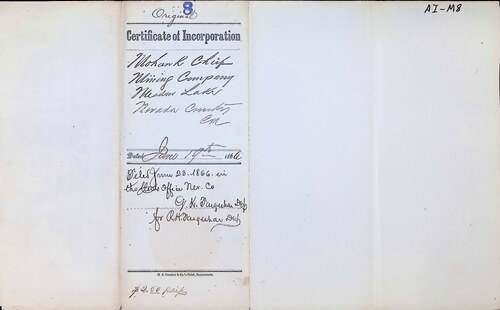 8
Original
AI-M8
Certificate of Incorporation
Mohawk Chief
Mining Company
Meadow Lake
Nevada County
Cal
Dated June 19th 1866
Filed June 23. 1866. in
the Clerks Office Nev. Co
R. H. Farquhar
for R. H. Farquhar Dep
$2.00 paid